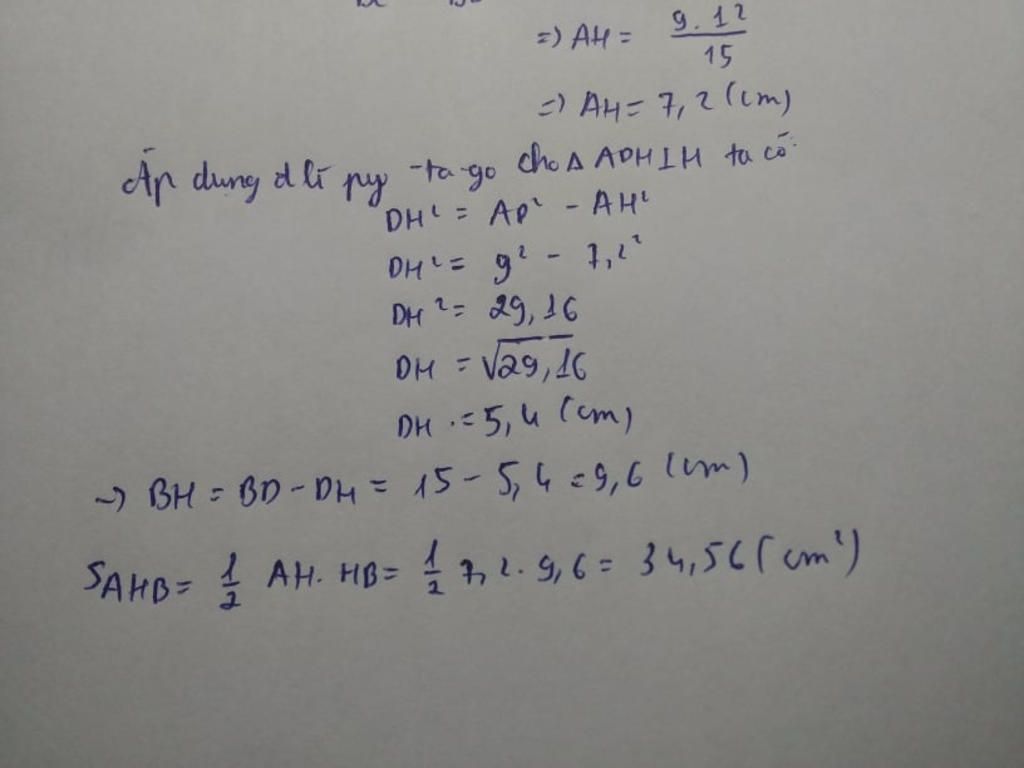 =) AH = 9.12 / 15
=) AH = 7,2 (cm)
Áp dung đlí py -ta-go cho Δ ADHIH ta có:
DH² = AD² - AH²
DH² = 9² - 7,2²
DH² = 29,16
DH = √29,16
DH = 5,4 (cm)
→ BH = BD - DH = 15 - 5,4 = 9,6 (cm)
SAHB = 1/2 AH. HB = 1/2 7,2. 9,6 = 34,56 (cm²)